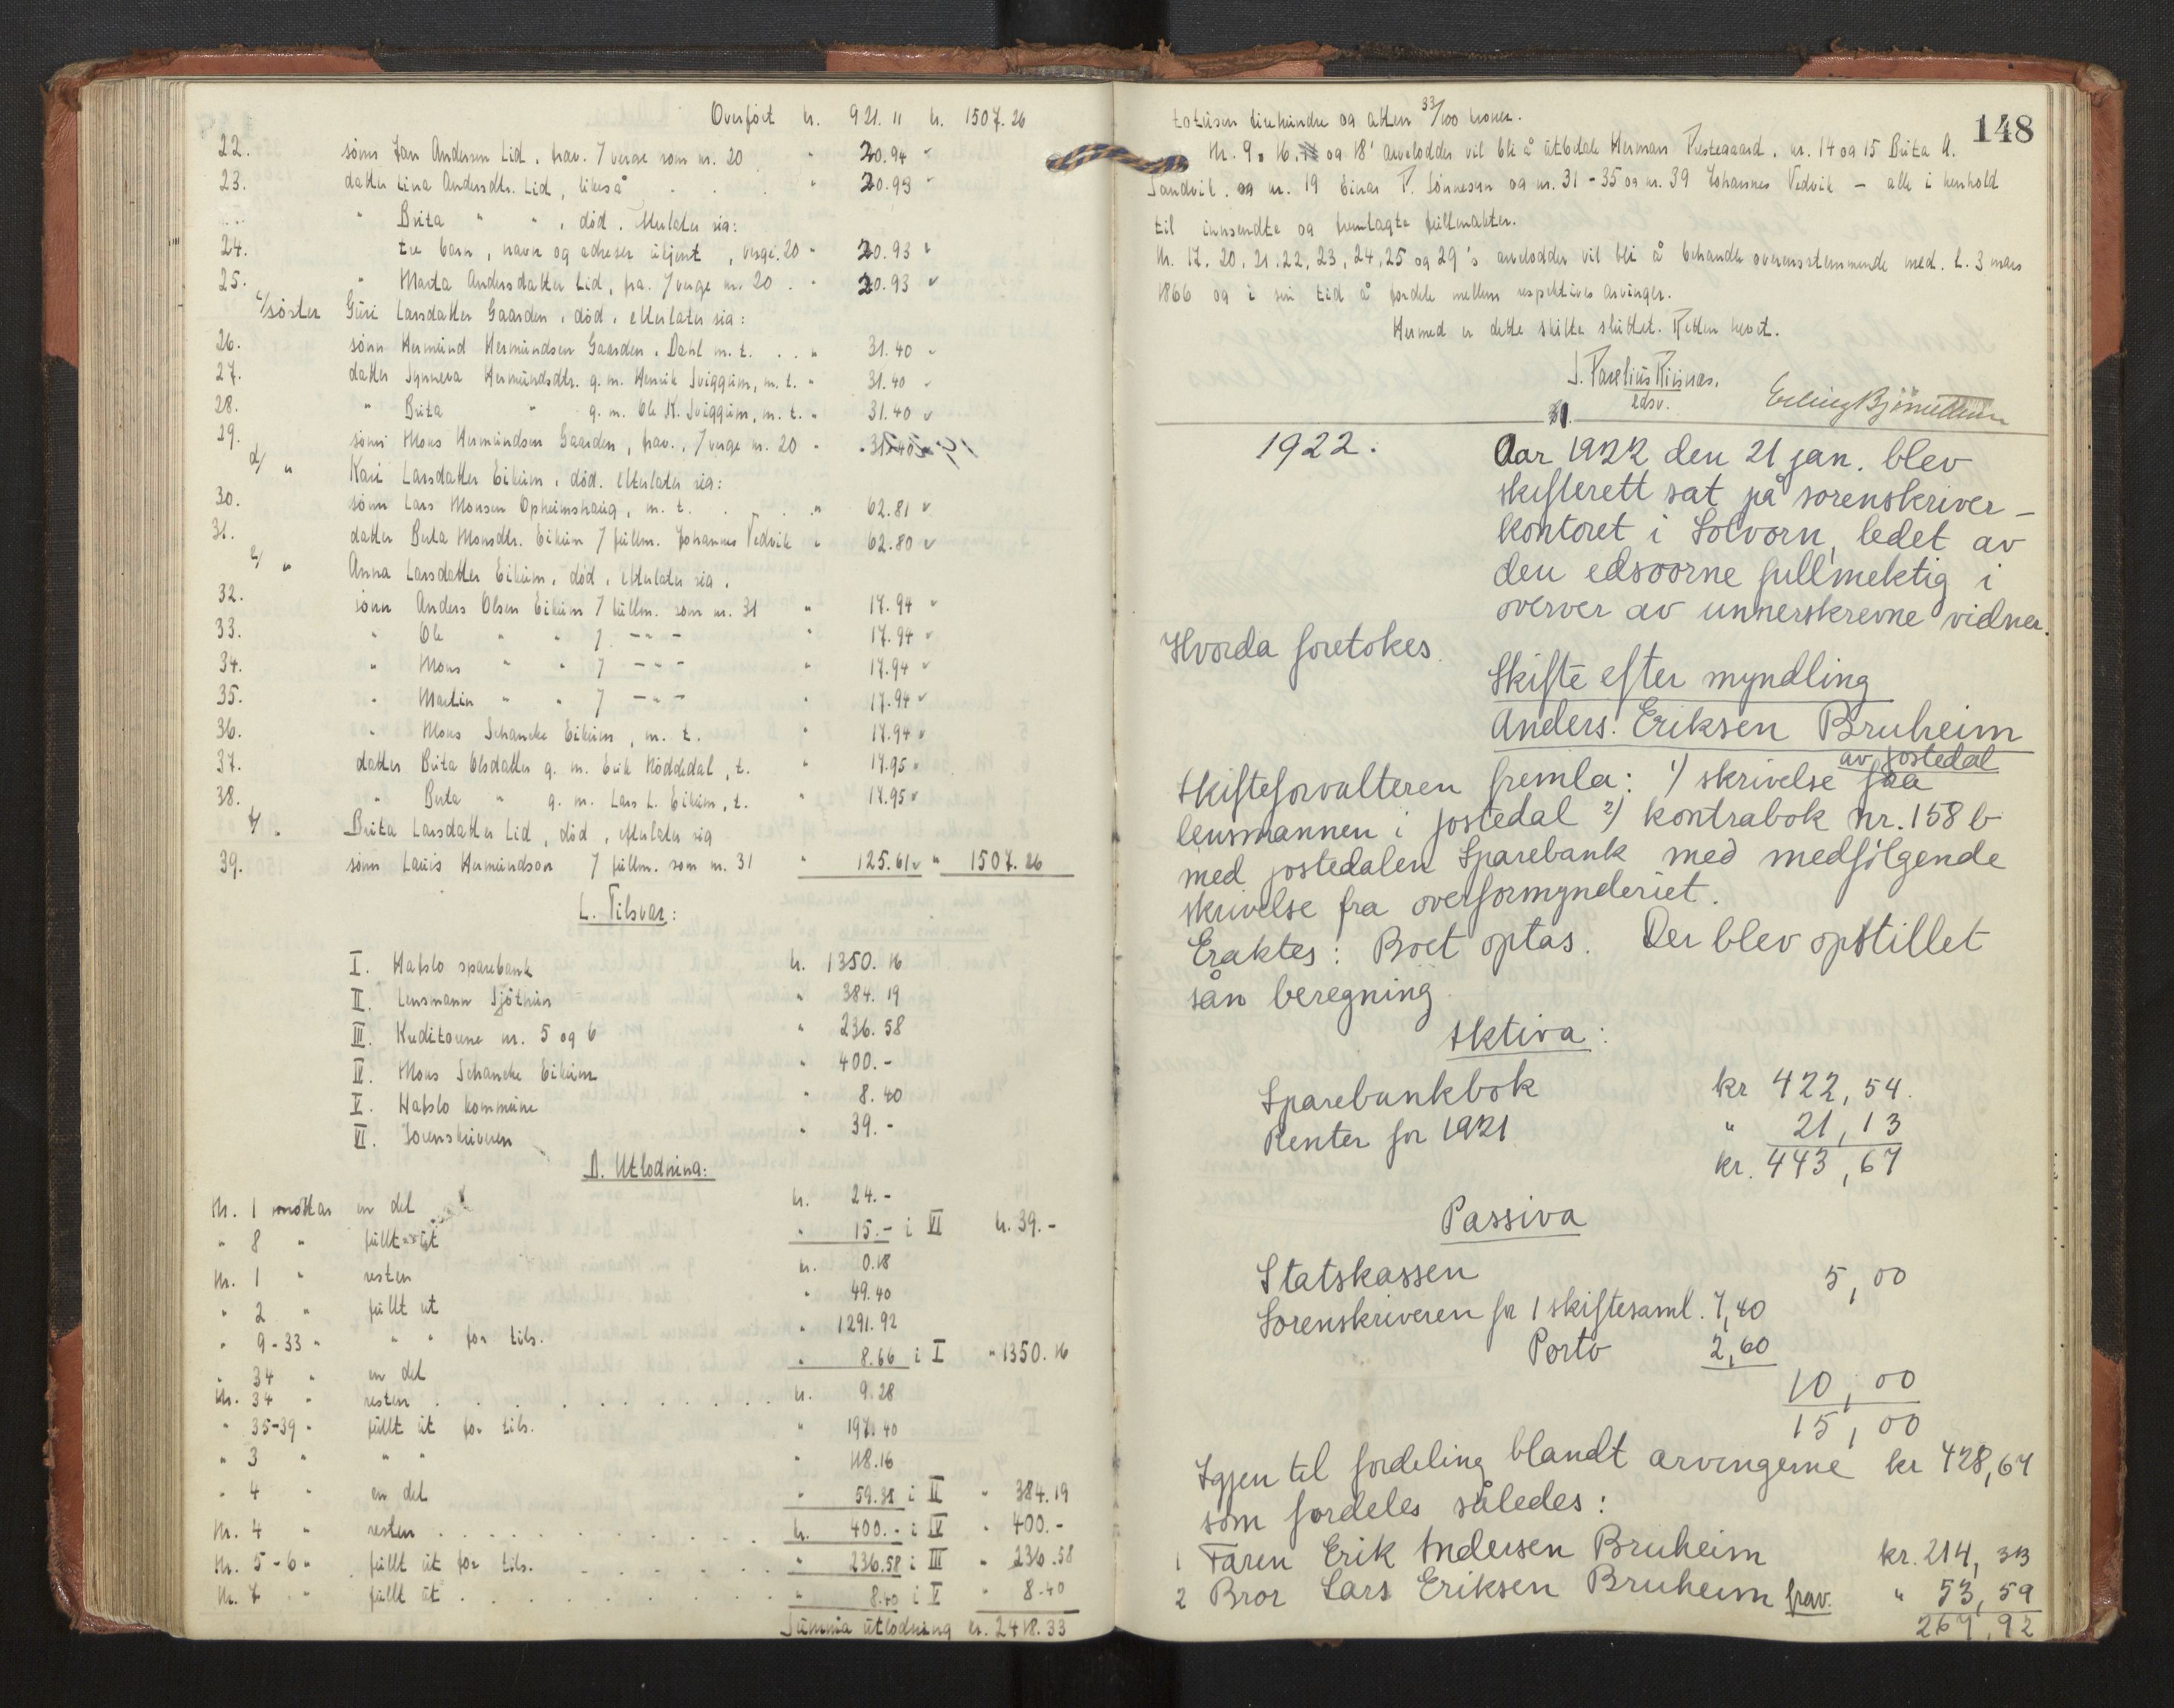 Overført kr. 921.11 kr. 1507.26
22. sønn Jan Andersen Lid, frav. / verge som nr. 20 " 20.94
23. datter Lina Andersdtr. Lid, likeså " 20.93
" Brita " " , død. Etterlater sig:
24. tre barn, navn og adresse ukjent, verge 20 " 20.93
25. " Marta Andersdatter Lid, fra. / verge nr. 20 . " 20.93
c/ søster Guri Larsdatter Gaarden, død, etterlater sig:
26. sønn Hermund Hermundsen Gaarden, Dahl m. t. . . " 31.40
27. datter Synneva Hermundsdtr. g. m. Henrik Sviggum, m. t. " 31.40
28. " Brita " g. m. Ole K. Sviggum, m. t. " 31.40
29. sønn Mons Hermundsen Gaarden, frav., / verge nr. 20 "
d/ " Kari Larsdatter Eikum, død. etterlater sig:
30. sønn Lars Monsen Opheimshaug, m. t. . . . " 62.81
31. datter Berta Monsdtr. Eikum / fullm. Johannes Vedvik " 62.80
e/ " Anna Larsdatter Eikum, død, etterlater sig.
32. sønn Anders Olsen Eikum / fullm. som nr. 31 " 17.94
33. " Ole " " / - " - " 17.94
34. " Mons " " / - " - " 17.94
35. " Martin " " / - " - " 17.94
36. " Mons Schancke Eikum, m. t. " 17.94
37. datter Brita Olsdatter g. m. Erik Høddedal, t. " 17.95
38. " Berta " g. m. Lars L. Eikum, t. " 17.95
f/ " Brita Larsdatter Lid, død, etterlater sig
39. sønn Lauis Hermundson / fullm. som nr. 31 " 125.61 " 1507.26
C. Tilsvar:
I. Hafslo sparebank kr. 1350.16
II. Lensmann Sjøthun " 384.19
III. Kreditorene nr. 5 og 6 " 236.58
IV. Mons Schancke Eikum " 400.-
V. Hafslo kommune " 8.40
VI. Sorenskriveren " 39.-
D. Utlodning:
Nr. 1 mottar en del kr. 24.-
" 8 " fullt ut " 15.- i VI kr. 39.-
Nr. 1 " resten kr. 0.18
" 2 " fullt ut " 49.40
" 9-33 " " " for tils. " 1291.92
" 34 " en del " 8.66 i I " 1350.16
Nr. 34 " resten . . . . . . . . . . kr. 9.28
" 35-39 " fullt ut for tils. " 197.40
" 3 " " " " 118.16
" 4 " en del " 59.38 i II " 384.19
Nr. 4 " resten . . . . . . . . . kr. 400.- i IV " 400.-
Nr. 5-6 " fullt ut for tils. . . . . . . " 236.58 i III " 236.58
Nr. 7 " fullt ut . . . . . . . . . " 8.40 i V " 8.40
Summa utlodning kr. 2418.33
148
totusen firehundre og atten 33/100 kroner.
Nr. 9, 16, og 18' arvelodder vil bli å utbdale Herman Prestegaard, nr. 14 og 15 Brita A.
Sandvik, og nr. 19 Einar P. Sønnesyn og nr. 31-35 og nr. 39 Johannes Vedvik - alle i henhold
til innsendte og fremlagte fullmakter.
Nr. 17, 20, 21, 22, 23, 24, 25 og 29's arvelodder vil bli å behandle overensstemmende med. L. 3 mars
1866 og i sin tid å fordele mellem respektive arvinger.
Hermed er dette skifte sluttet. Retten hevet.
edsv.
1922. Aar 1922 den 21 jan. blev
skifterett sat på sorenskriver-
kontoret i Solvorn, ledet av
den edsvorne fullmektig i
overver av unnerskrevne vidner.
Hvorda foretokes.
Skifte efter myndling
Anders Eriksen Bruheim
av Jostedal
Skifteforvalteren fremla: 1) skrivelse fra
lensmannen i Jostedal 2) kontrabok nr. 158 b
med Jostedalen Sparebank med medfølgende
skrivelse fra overformynderiet.
Eraktes: Boet optas. Der blev opstillet
sån beregning
Aktiva:
Sparebankbok kr 422,54.
Renter for 1921 " 21,13
kr. 443,67
Passiva
Statskassen 5,00
Sorenskriveren for 1 skiftesaml. 7,40
Porto 2,60
10,00
15,00
Igjen til fordeling blandt arvingerne kr 428,67
som fordeles således:
1 Faren Erik Andersen Bruheim kr. 214,33
2 Bror Lars Eriksen Bruheim frav. " 53,59
267,92